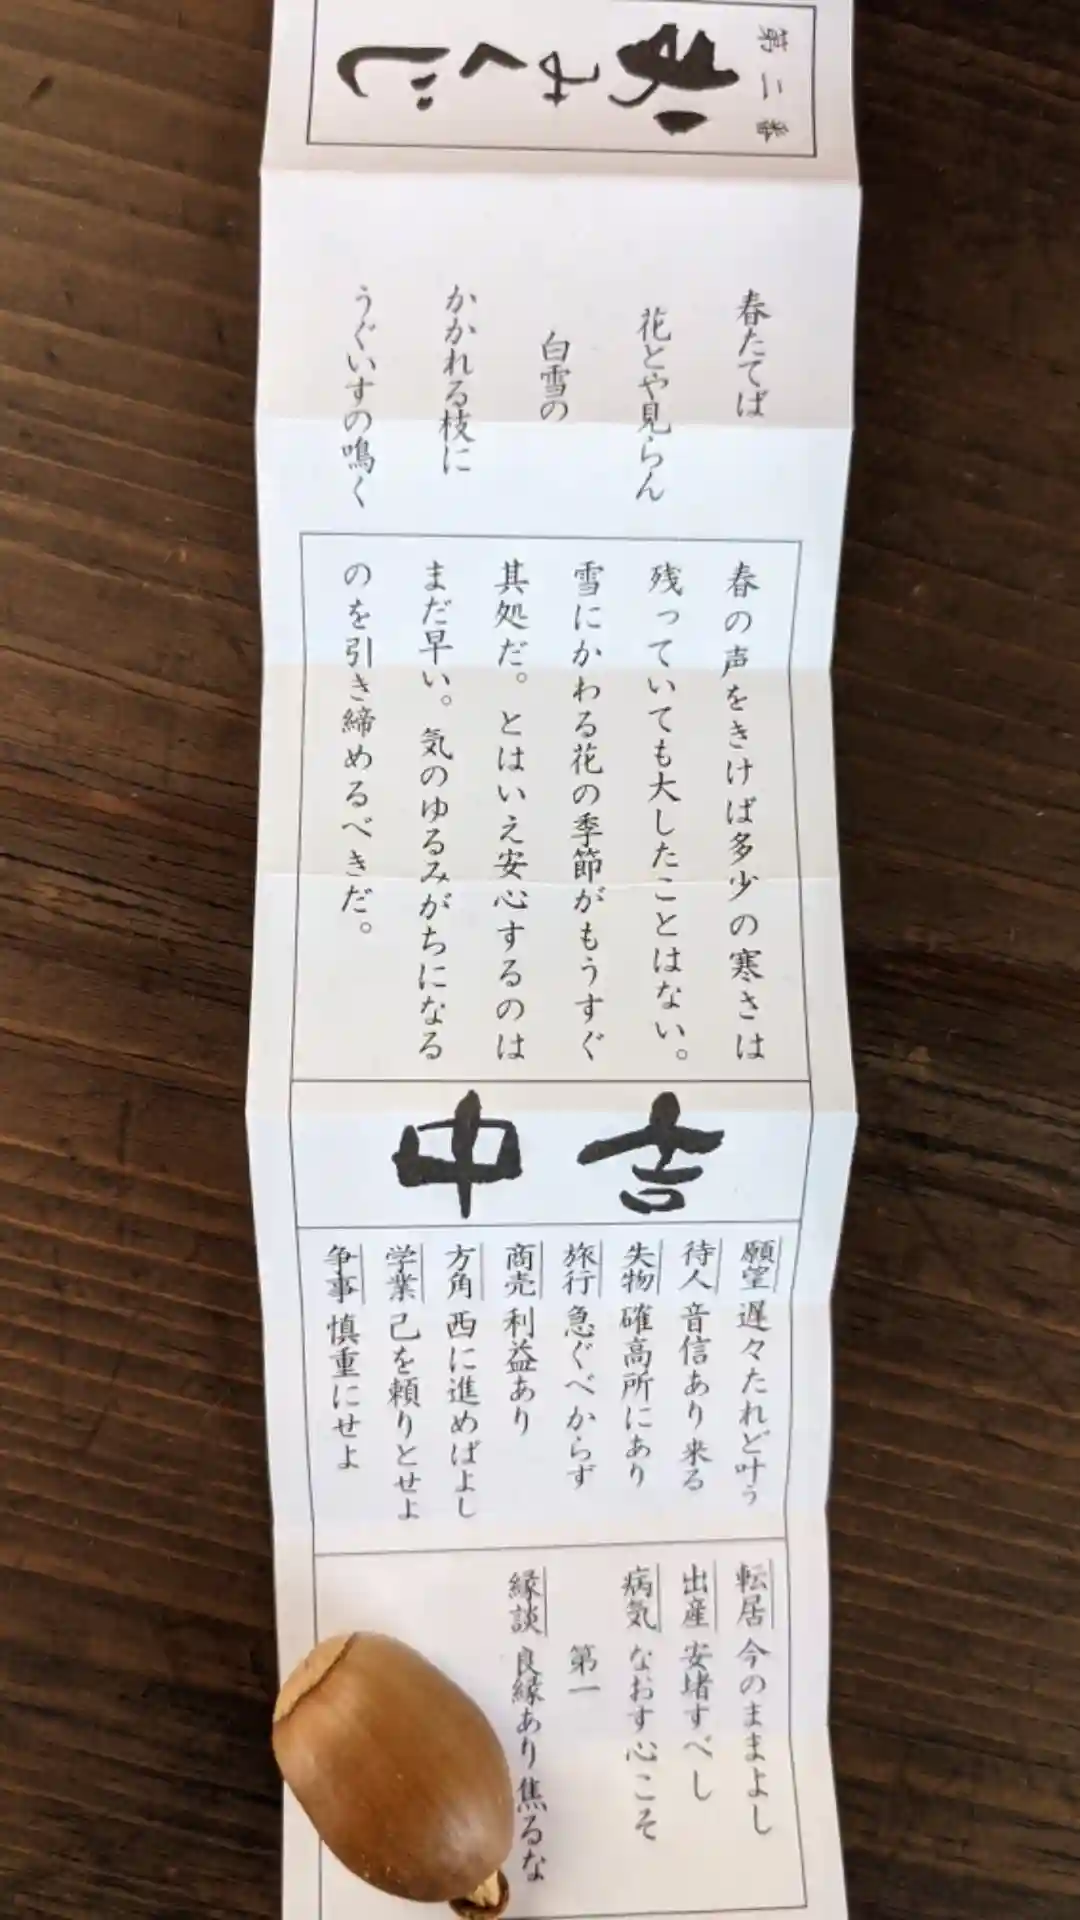 第二番
おみくじ
春たてば
花とや見らん
白雪の
かかれる枝に
うぐいすの鳴く
春の声をきけば多少の寒さは
残っていても大したことはない。
雪にかわる花の季節がもうすぐ
其処だ。とはいえ安心するのは
まだ早い。気のゆるみがちになる
のを引き締めるべきだ。
中吉
願望 遅々たれど叶う
待人 音信あり来る
失物 確高所にあり
旅行 急ぐべからず
商売 利益あり
方角 西に進めばよし
学業 己を頼りとせよ
争事 慎重にせよ
転居 今のままよし
出産 安堵すべし
病気 なおす心こそ
第一
縁談 良縁あり焦るな